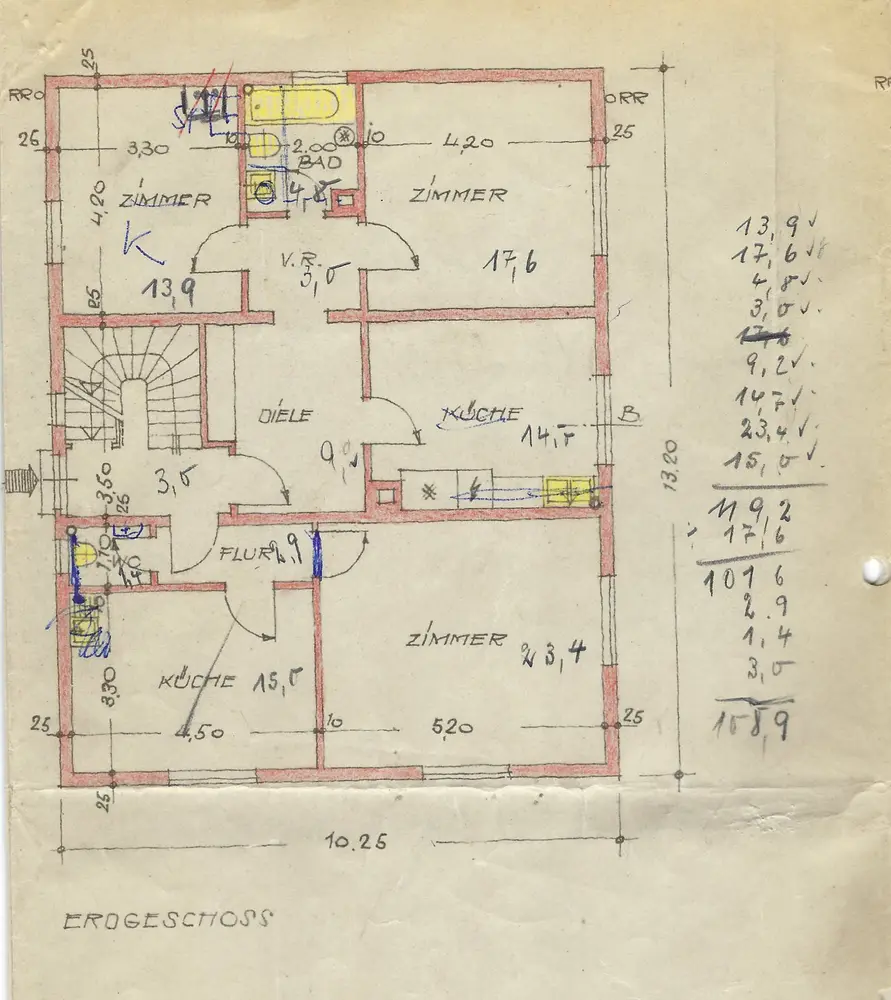 25
RR
RR
26
3,30
10
2.00
10
4,20
25
BAD
4,8
ZIMMER
ZIMMER
4,20
K
V.R.
3,0
17,6
13,9
25
DIELE
KÜCHE
14,7
B
9,2
3,0
3,50
25
13,20
1,10
FLUR 2,9
1,40
10
ZIMMER
23,4
KÜCHE 15,0
3,30
25
4,50
10
5,20
25
25
10.25
ERDGESCHOSS
13,9
17,6
4,8
3,0
9,2
14,7
23,4
15,0
119,2
17,6
101 6
2.9
1,4
3,0
108,9